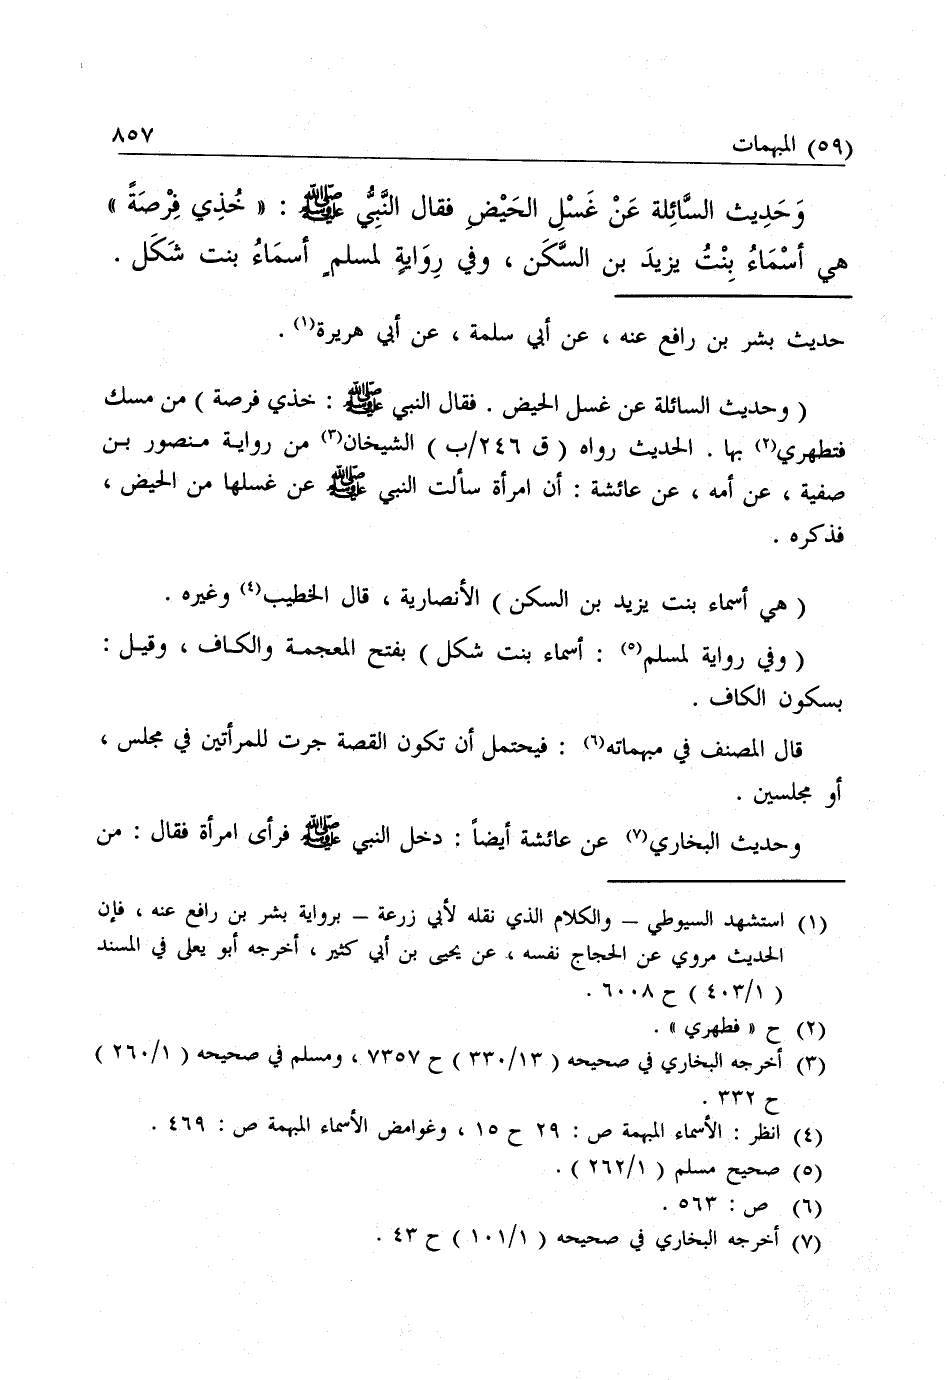 (٥٩) المبهمات ٨٥٧
وَحَدِيث السَّائِلة عَنْ غَسْلِ الحَيْضِ فقال النَّبِيُّ ﷺ : « خُذِي فِرْصَةً »
هي أسْمَاءُ بِنْتُ يزيدَ بن السَّكَن ، وفي رِوَايةٍ لمسلمٍ أسمَاءُ بنت شَكَل .
حديث بشر بن رافع عنه ، عن أبي سلمة ، عن أبي هريرة(١) .
( وحديث السائلة عن غسل الحيض . فقال النبي ﷺ : خذي فرصة ) من مسك
فتطهري(٢) بها . الحديث رواه ( ق ٢٤٦/ب ) الشيخان(٣) من رواية منصور بن
صفية ، عن أمه ، عن عائشة : أن امرأة سألت النبي ﷺ عن غسلها من الحيض ،
فذكره .
( هي أسماء بنت يزيد بن السكن ) الأنصارية ، قال الخطيب(٤) وغيره .
( وفي رواية لمسلم(٥) : أسماء بنت شكل ) بفتح المعجمة والكاف ، وقيل :
بسكون الكاف .
قال المصنف في مبهماته(٦) : فيحتمل أن تكون القصة جرت للمرأتين في مجلس ،
أو مجلسين .
وحديث البخاري(٧) عن عائشة أيضاً : دخل النبي ﷺ فرأى امرأة فقال : من
(١) استشهد السيوطي – والكلام الذي نقله لأبي زرعة – برواية بشر بن رافع عنه ، فإن
الحديث مروي عن الحجاج نفسه ، عن يحيى بن أبي كثير ، أخرجه أبو يعلى في المسند
( ٤٠٣/١ ) ح ٦٠٠٨ .
(٢) ح « فطهري » .
(٣) أخرجه البخاري في صحيحه ( ٣٣٠/١٣ ) ح ٧٣٥٧ ، ومسلم في صحيحه ( ٢٦٠/١ )
ح ٣٣٢ .
(٤) انظر : الأسماء المبهمة ص : ٢٩ ح ١٥ ، وغوامض الأسماء المبهمة ص : ٤٦٩ .
(٥) صحيح مسلم ( ٢٦٢/١ ) .
(٦) ص : ٥٦٣ .
(٧) أخرجه البخاري في صحيحه ( ١٠١/١ ) ح ٤٣ .